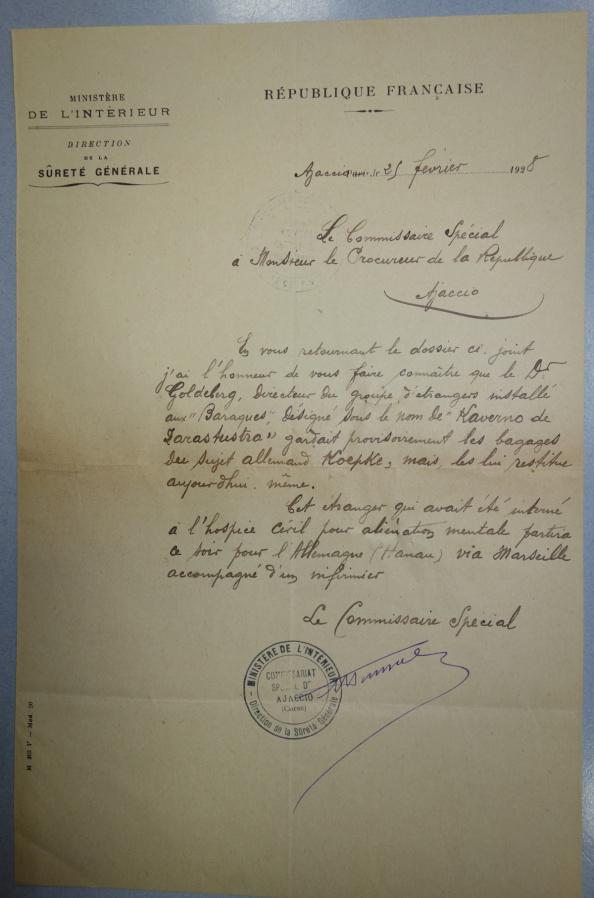 MINISTÈRE
DE L'INTÉRIEUR
DIRECTION
DE LA
SÛRETÉ GÉNÉRALE
RÉPUBLIQUE FRANÇAISE
Ajaccio, le 25 février 1928
Le Commissaire Spécial
à Monsieur le Procureur de la République
Ajaccio
En vous retournant le dossier ci-joint
j'ai l'honneur de vous faire connaître que le Dr
Goldeberg, directeur du groupe d'étrangers installé
aux "Baraques", désigné sous le nom de "Kaverno de
Zarastustra" gardait provisoirement les bagages
du sujet allemand Koepke, mais, les lui restitue
aujourdhui-même.
Cet étranger qui avait été interné
à l'hospice civil pour aliénation mentale partira
ce soir pour l'Allemagne (Hanau) via Marseille
accompagné d'un infirmier
Le Commissaire Spécial
MINISTÈRE DE L'INTÉRIEUR
COMMISSARIAT
SPÉCIAL DE
AJACCIO
(Corse)
Direction de la Sûreté Générale